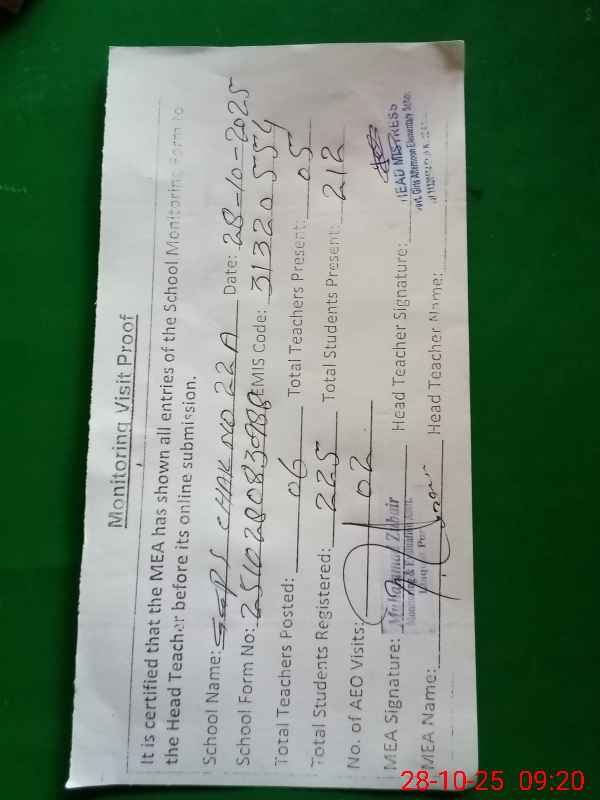 Monitoring Visit Proof
It is certified that the MEA has shown all entries of the School Monitoring Form to
the Head Teacher before its online submission.
School Name: GGPS CHAK NO 22 A Date: 28-10-2025
School Form No: EMIS Code: 31320554
Total Teachers Posted: 06 Total Teachers Present: 05
Total Students Registered: 225 Total Students Present: 212
No. of AEO Visits: 02
MEA Signature: Muhammad Zubair Head Teacher Signature: HEAD MISTRESS
Monitoring & Evaluation Asstt.
Govt. Girls Afternoon Elementary School
MEA Name: Head Teacher Name:
28-10-25 09:20